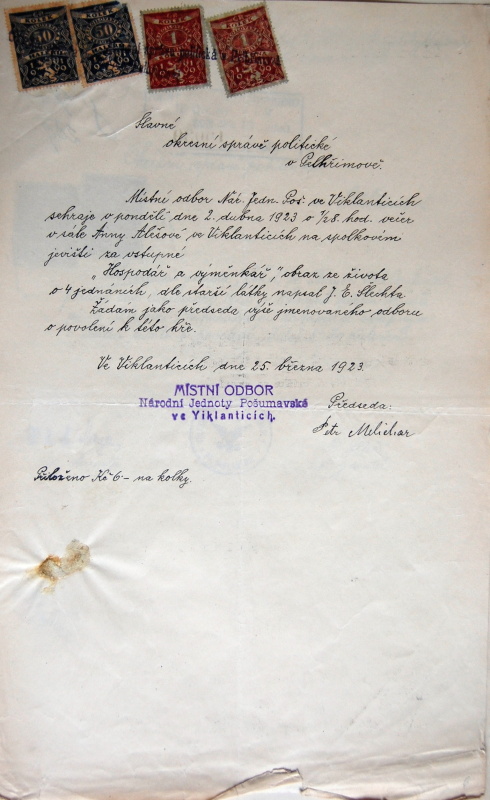 KOLEK KOLEK KOLEK KOLEK
50 50 1
Slavné
okresní správě politické
v Pelhřimově.
Místní odbor Nár. Jedn. Poš. ve Viklanticích
sehraje v pondělí dne 2. dubna 1923 o ½8. hod. večer
v sále Anny Alešové ve Viklanticích na spolkovém
jevišti za vstupné
„Hospodář a výměnkář," obraz ze života
o 4 jednáních, dle starší látky napsal J. E. Šlechta
Žádám jako předseda výše jmenovaného odboru
o povolení k této hře.
Ve Viklanticích dne 25. března 1923.
MÍSTNÍ ODBOR
Národní Jednoty Pošumavské
ve Viklanticích.
Předseda:
Petr Melichar
Přiloženo Kč 6·- na kolky.